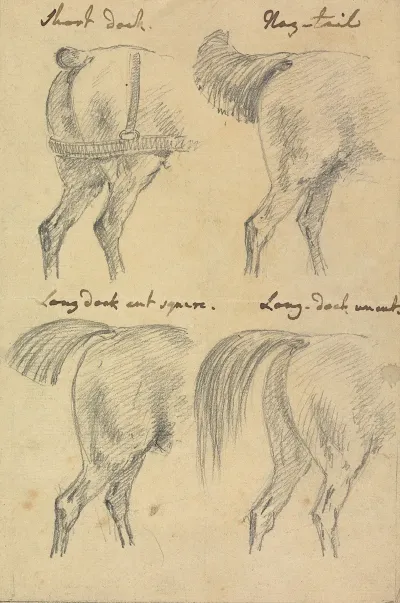 Short dock.
Nag-tail
Long dock cut square.
Long-dock uncut.